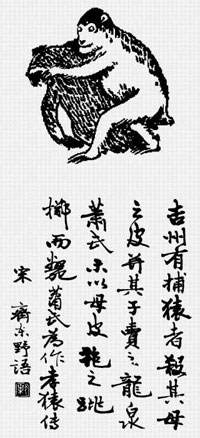 吉州有捕猿者殺其母
之皮并其子賣之龍泉
蕭氏示以母皮抱之跳
擲而斃蕭氏為作孝猿傳
宋 齊东野語